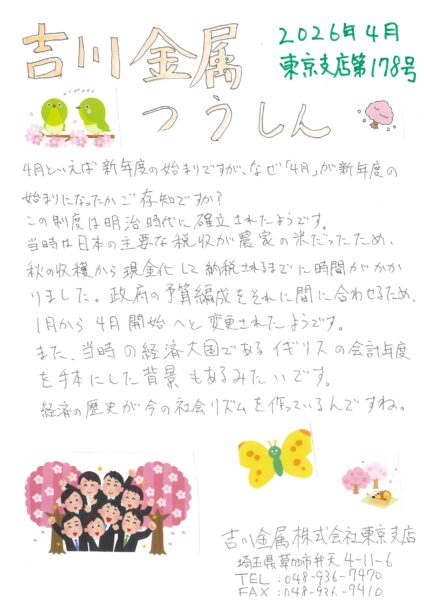 吉川金属
つうしん
2026年4月
東京支店第178号
4月といえば新年度の始まりですが、なぜ「4月」が新年度の
始まりになったかご存知ですか?
この制度は明治時代に確立されたようです。
当時は日本の主要な税収が農家の米だったため、
秋の収穫から現金化して納税されるまでに時間がかか
りました。政府の予算編成をそれに間に合わせるため、
1月から4月開始へと変更されたようです。
また、当時の経済大国であるイギリスの会計年度
を手本にした背景もあるみたいです。
経済の歴史が今の社会リズムを作っているんですね。
吉川金属株式会社東京支店
埼玉県草加市弁天4-11-6
TEL:048-936-7470
FAX:048-936-9410